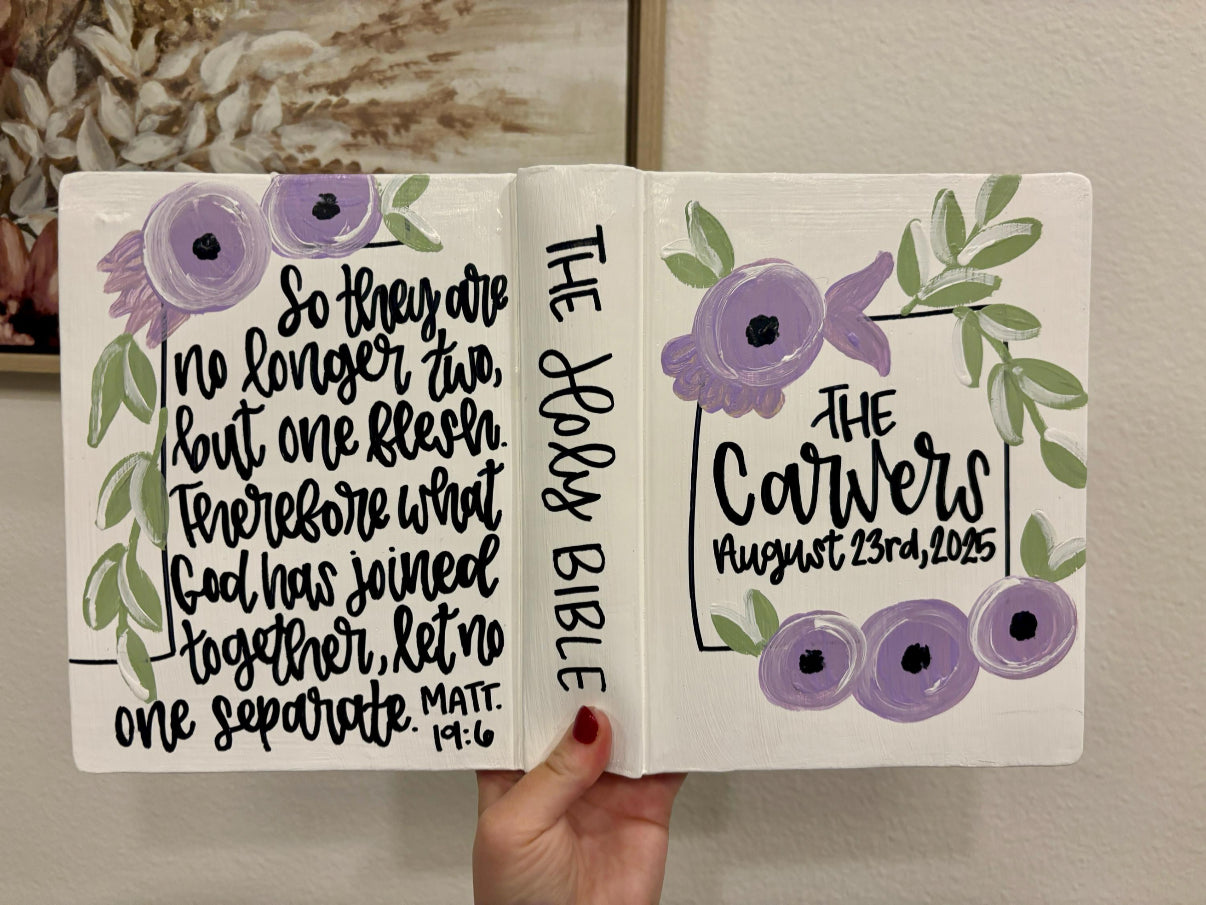 So they are
no longer two,
but one flesh.
Therefore what
God has joined
together, let no
one separate. MATT.
19:6
THE Holy BIBLE
THE
Carvers
August 23rd, 2025